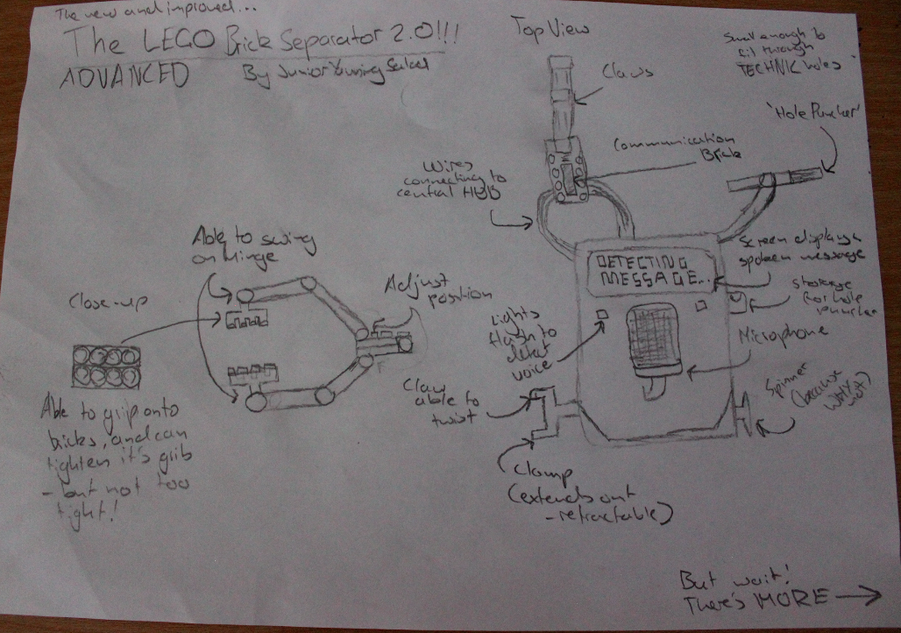 The new and improved...
The LEGO Brick Separator 2.0!!!
ADVANCED
By Junior
Top View
Small enough to
fit through
TECHNIC holes
Claws
'Hole Puncher'
Communication
Brick
Wires
connecting to
central HUB
Able to swing
on hinge
Screen displays
spoken message
DETECTING
MESSAGE...
Adjust
position
Close-up
storage
for hole
puncher
Lights
flash to
detect
voice
Microphone
Claw
able to
twist
Spinner
(because
why
not)
Able to grip onto
bricks, and can
tighten it's grib
- but not too
tight!
Clamp
(extends out
- retractable)
But wait!
There's MORE